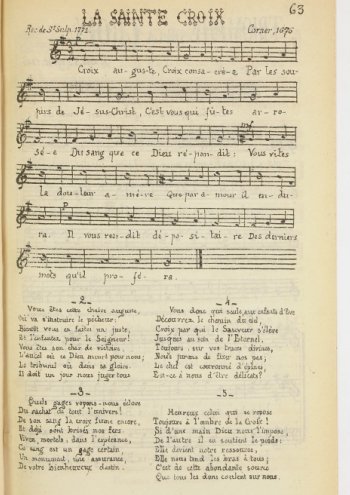 63
LA SAINTE CROIX
Rec. de St Sulp. 1772
Corner, 1675
Croix au-gus-te, Croix consa-cré-e Par les sou-
pirs de Jé-sus-Christ, C'est vous qui fû-tes ar-ro-
sé-e Du sang que ce Dieu ré-pan-dit: Vous vîtes
la dou-leur a-mè-re Que par a-mour il en-du-
ra. Il vous ren-dit dé-po-si-tai-re Des derniers
mots qu'il pro-fé-ra.
-2-
Vous êtes cette chaire auguste,
Où va s'instruire le pécheur;
Bientôt vous en faites un juste,
Et l'enfantez pour le Seigneur!
Vous êtes son char de victoire,
L'autel où ce Dieu meurt pour nous;
Le tribunal où dans sa gloire
Il doit un jour nous juger tous
-3-
Quels gages voyons-nous éclore
Du rachat de tout l'univers!
De son sang la croix fume encore,
Et déjà sont brisés nos fers.
Vivez, mortels, dans l'espérance,
Ce sang est un gage certain,
Un monument, une assurance
De votre bienheureux destin.
-4-
Vous donc qui seule aux enfants d'Ève
Découvrez le chemin du ciel,
Croix par qui le Sauveur s'élève
Jusques au sein de l'Éternel,
Toujours sur vos traces divines,
Nous jurons de fixer nos pas;
Le chef est couronné d'épines,
Est-ce à nous d'être délicats?
-5-
Heureux celui qui se repose
Toujours à l'ombre de la Croix!
Si d'une main Dieu nous l'impose,
De l'autre il en soutient le poids:
Elle devient notre ressource,
Elle nous tend les bras à tous;
C'est de cette abondante source
Que tous les dons coulent sur nous.